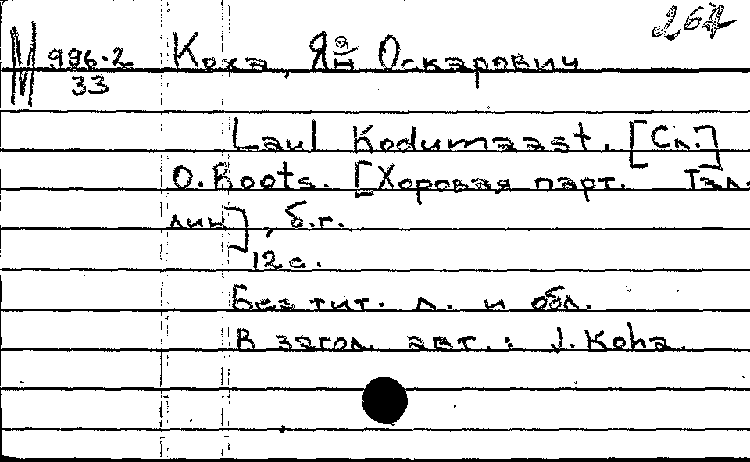 267
М 996-2 Коха, Яан Оскарович
33
Laul Kodumaast. [Сл.]
O. Roots. [Хоровая парт. Тал-
лин], б.г.
12 с.
Без тит. л. и обл.
В загол. авт.: J. Koha.